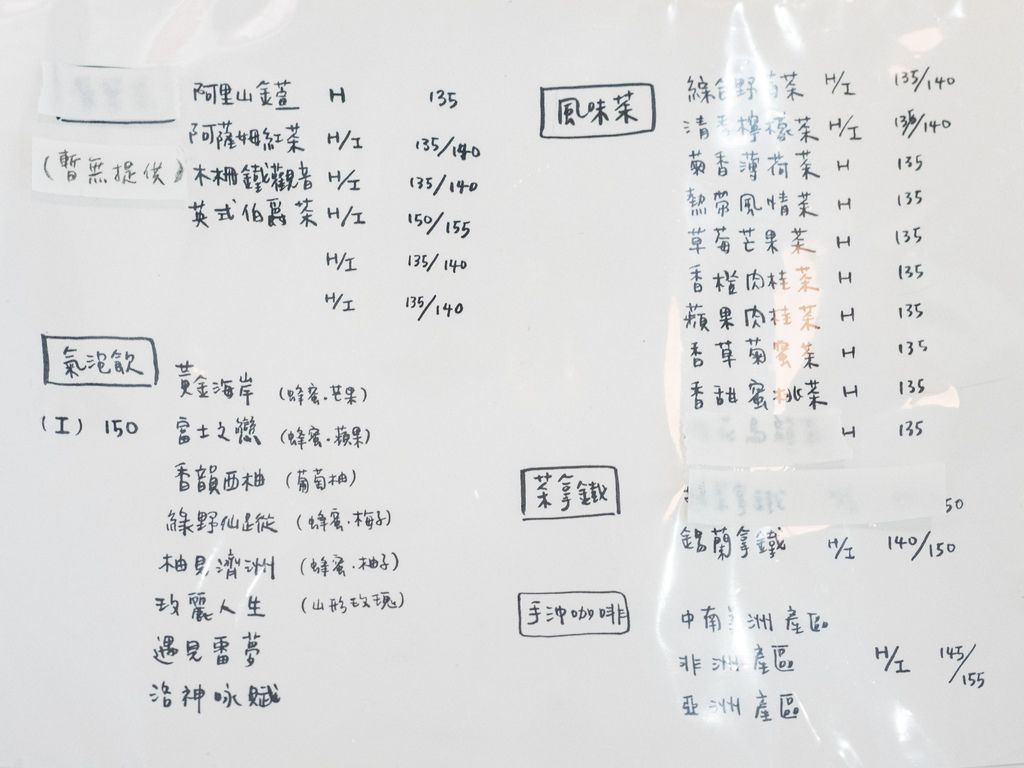 (暫無提供)
阿里山金萱 H 135
阿薩姆紅茶 H/I 135/140
木柵鐵觀音 H/I 135/140
英式伯爵茶 H/I 150/155
H/I 135/140
H/I 135/140
氣泡飲
(I) 150
黃金海岸 (蜂蜜.芒果)
富士之戀 (蜂蜜.蘋果)
香韻西柚 (葡萄柚)
綠野仙蹤 (蜂蜜.梅子)
柚見濟洲 (蜂蜜.柚子)
玫麗人生 (山形玫瑰)
遇見雷夢
洛神咏賦
風味茶
綜合野莓茶 H/I 135/140
清香檸檬茶 H/I 135/140
菊香薄荷茶 H 135
熱帶風情茶 H 135
草莓芒果茶 H 135
香橙肉桂茶 H 135
蘋果肉桂茶 H 135
香草菊蜜茶 H 135
香甜蜜桃茶 H 135
H 135
茶拿鐵
50
錫蘭拿鐵 H/I 140/150
手沖咖啡
中南美洲產區
非洲產區 H/I 145/155
亞洲產區